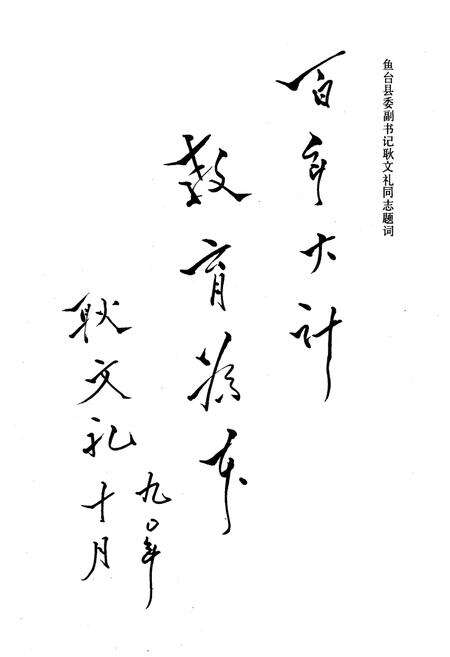 鱼台县委副书记耿文礼同志题词
百年大计
教育为本
九〇年
耿文礼十月